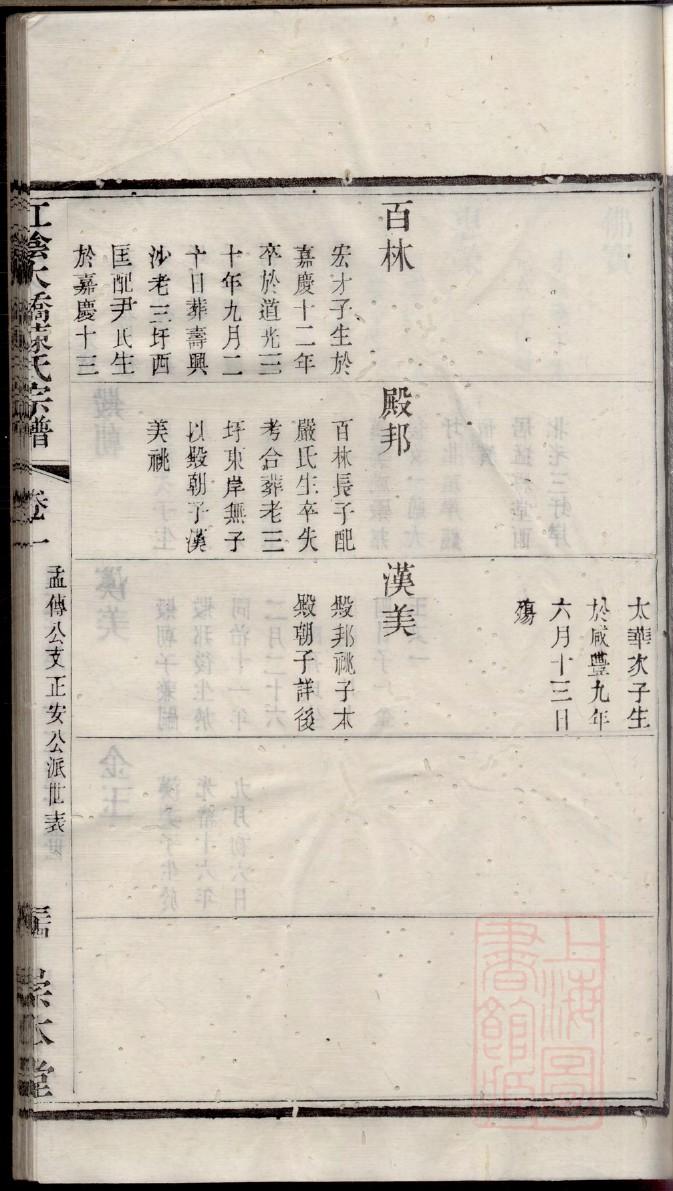 百林
宏才子生於
嘉慶十二年
卒於道光三
十年九月二
十日葬壽興
沙老三圩西
匡配尹氏生
於嘉慶十三
殿邦
百林長子配
嚴氏生卒失
考合葬老三
圩東岸無子
以殿朝子漢
美祧
太華次子生
於咸豐九年
六月十三日
殤
漢美
殿邦祧子本
殿朝子詳後
江陰大橋陳氏宗譜
卷一
孟傳公支正安公派世表
宗本堂
上海圖
書館藏